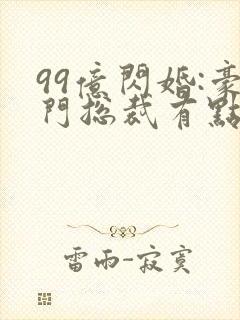 99億閃婚:豪
門总裁有點
雷雨-寂寞